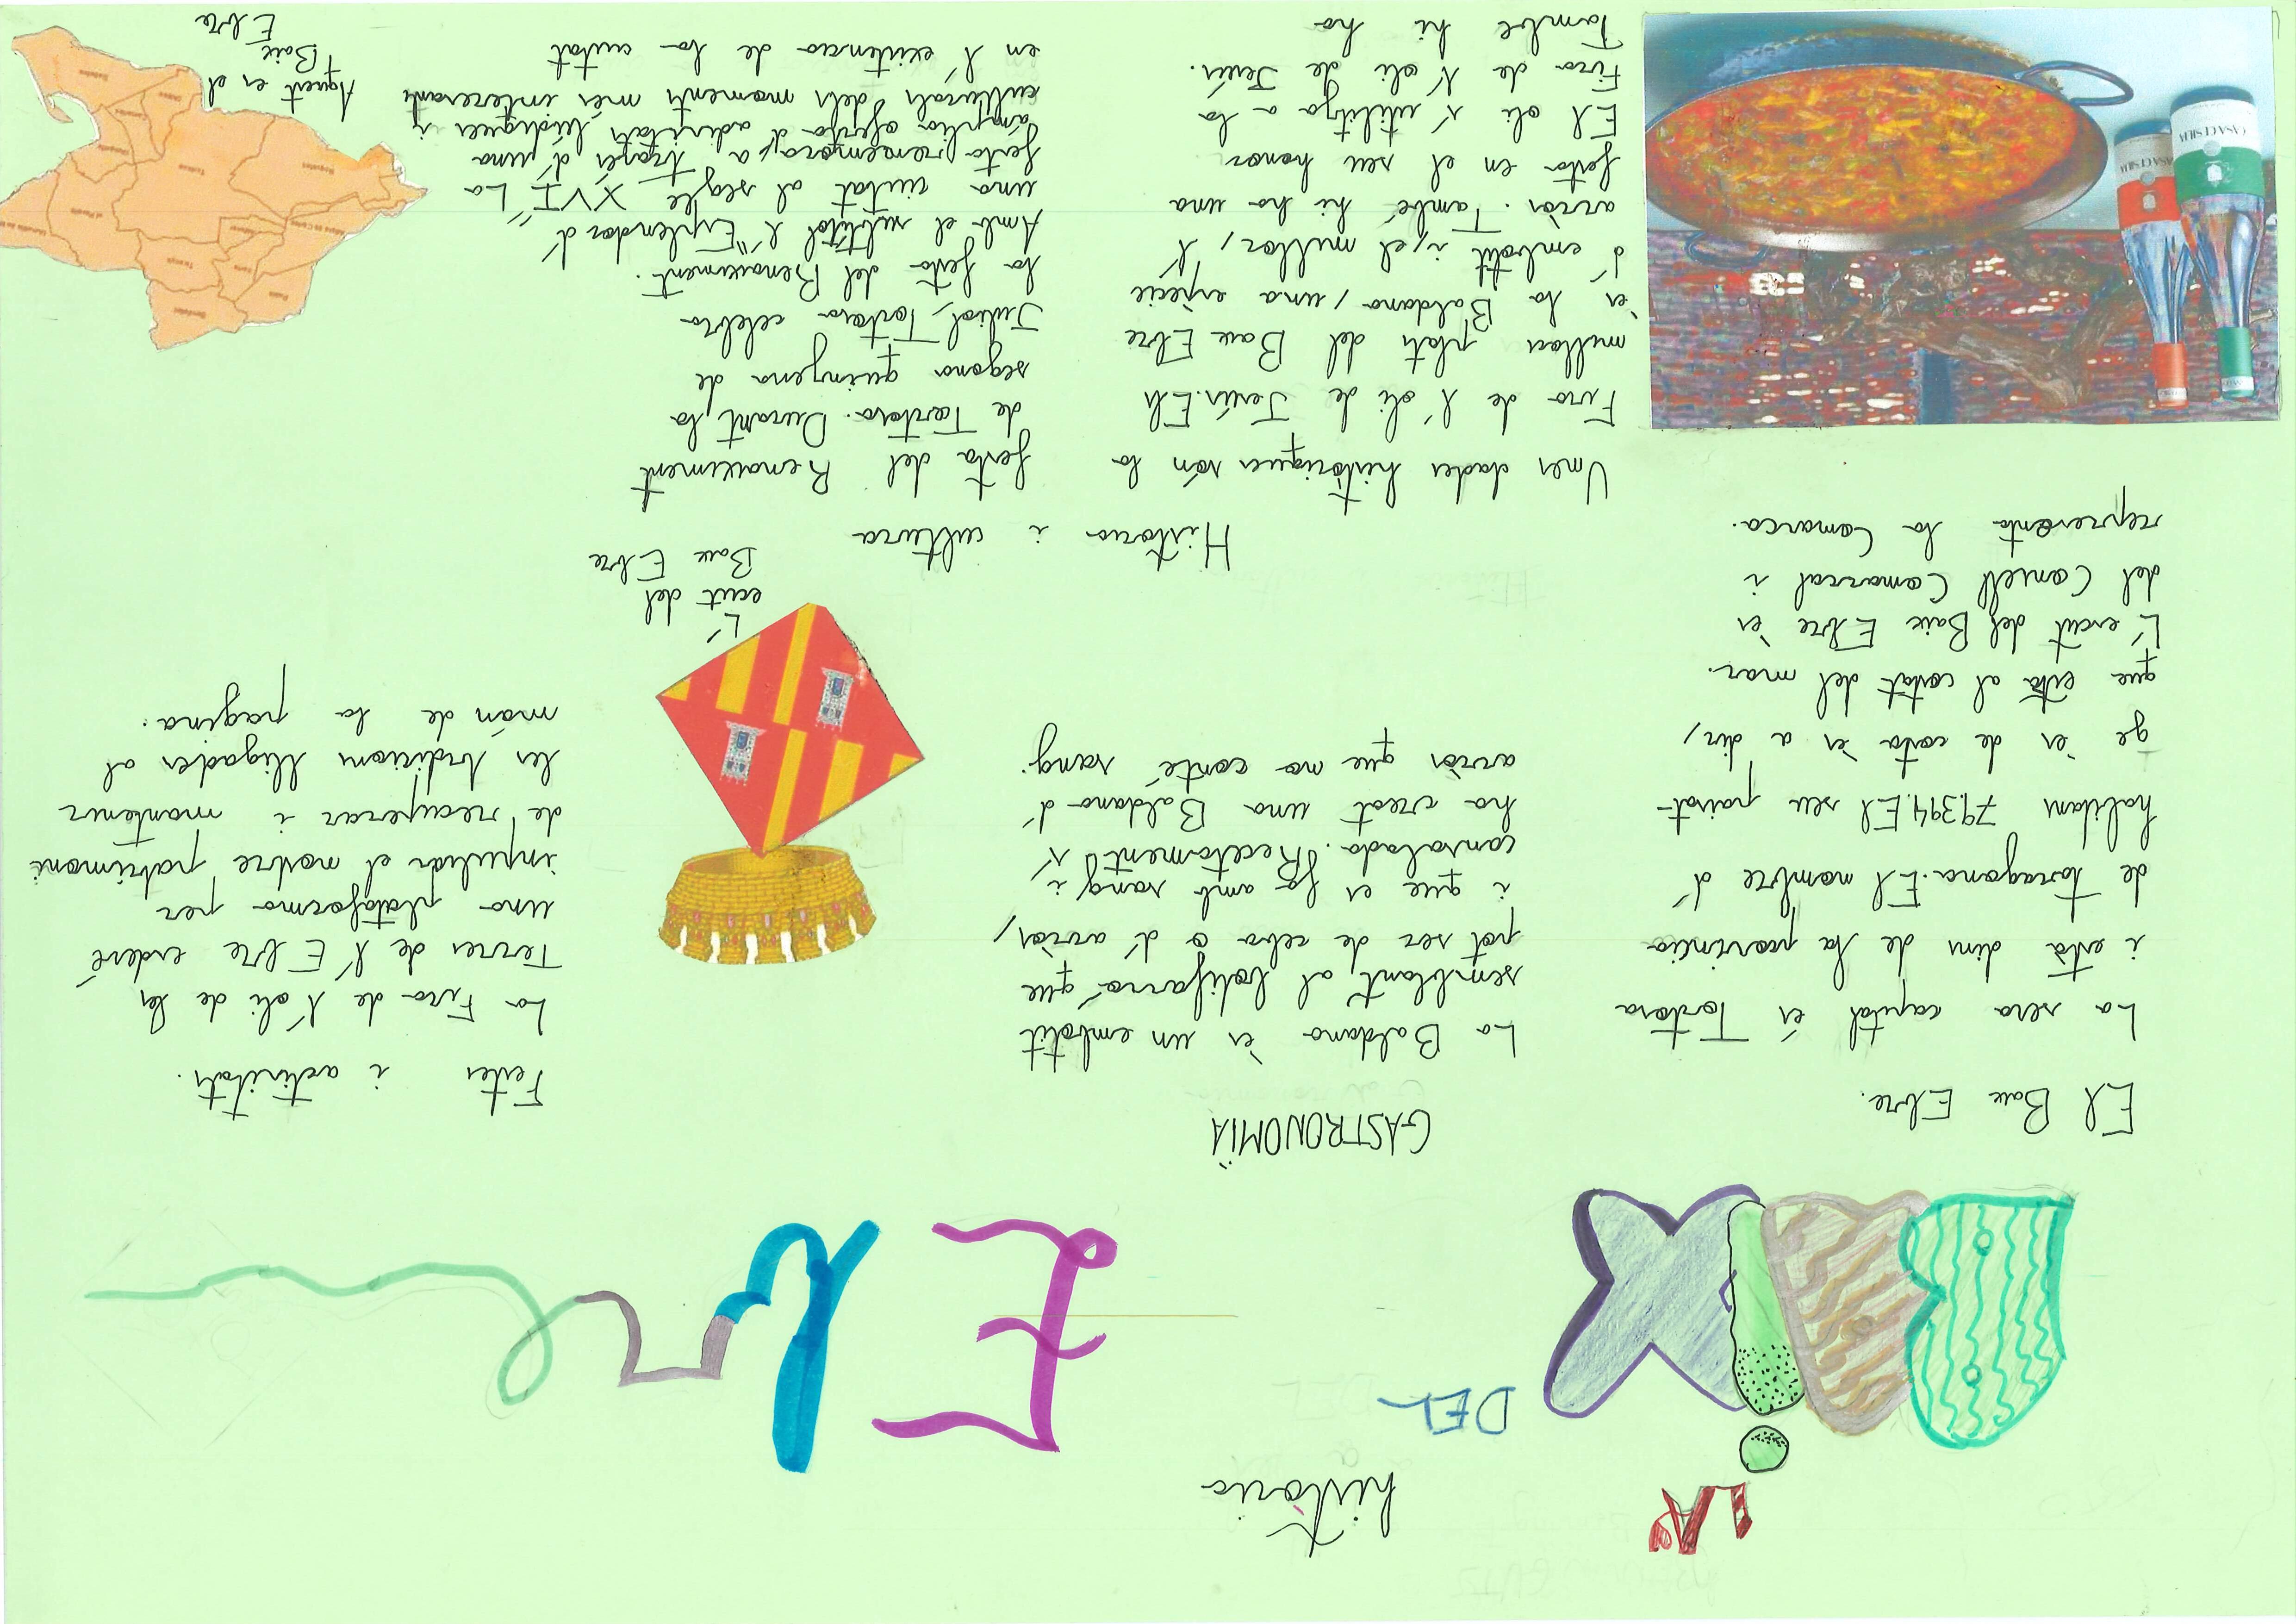 LA
història
DEL
BAIX
Ebre
El Baix Ebre.
La seva capital és Tortosa
i està dins de la província
de taragona. El nombre d'
habitans 79.394. El seu paisat-
ge ès de costa ès a dir,
que està al costat del mar.
L'escut del Baix Ebre ès
del Consell Comarcal i
representa la Comarca.
GASTRONOMIÀ
La Baldana ès un embotit
semblant al botifarró que
pot ser de ceba o d'arròs,
i que es fa amb sang i
cansalada. Recetament s'
ha creat una Baldana d'
arròs que no conté sang.
Festes i activitats.
La Fira de l'oli de les
Terres de l'Ebre esdevé
una plataforma per
inpulsar el nostre patrimoni
de recuperar i mantenir
les tradicions lligades al
món de la pagina.
L'
escut del
Baix Ebre
Història i cultura
Unes dades històriques són la
Fira de l'oli de Jesús. Els
millors plats del Baix Ebre
ès la Baldana, una espècie
d'embotit i, el millor, l'
arròs. També hi ha una
festa en el seu honor
El oli s'utilitza a la
Fira de l'oli de Jesús.
També hi ha
festa del Renaixement
de Tortosa. Durant la
segona quinzena de
Juliol, Tortosa celebra
la festa del Renaixement.
Amb el subtitol l'"Esplendor d'
una ciutat al segle XVI" La
festa rememora, a través d'una
àmplia oferta d'activitats lúdiques i
culturals dels moments més interesants
en l'existencia de la ciutat
Aquest es el
Baix
Ebre